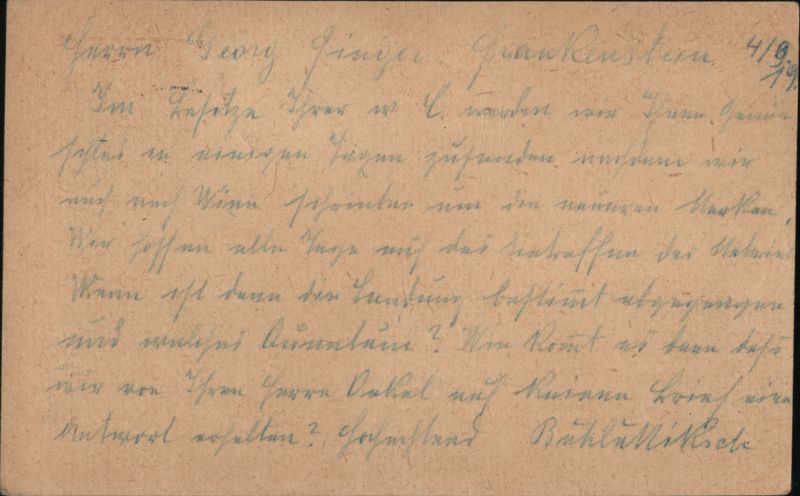 Herrn Georg Singer Frankenstein. 4/9. 19.
Im Besitze Ihrer w C. werden wir Ihnen Gewün
schtes in einigen Tagen zusenden, nachdem wir
erst nach Wien schreiben um die neueren Marken.
Wir hoffen alle Tage auf das Eintreffen des
Wann ist denn die Sendung bestimmt abgegangen
und welches Quantum? Wie kommt es denn dass
wir von Ihren Herrn Onkel auf keinen Brief eine
Antwort erhalten? Hochachtend